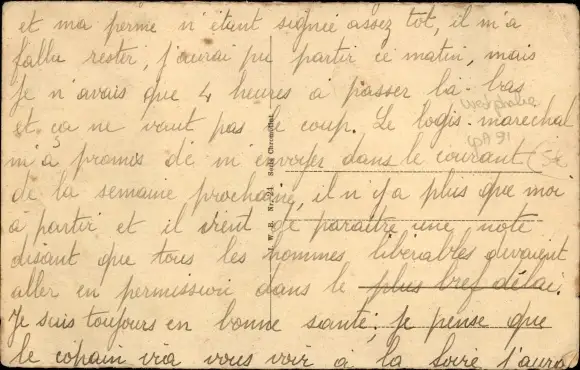 et ma perme n'étant signée assez tôt, il m'a
fallu rester, j'aurai pu partir ce matin, mais
je n'avais que 4 heures à passer là-bas
et ça ne vaut pas le coup. Le logis-marechal
m'a promis de m'envoyer dans le courant
de la semaine prochaine, il n'y a plus que moi
à partir et il vient de paraître une note
disant que tous les hommes libérables devaient
aller en permission dans le plus bref délai.
Je suis toujours en bonne santé; je pense que
le copain ira vous voir à la Loire j'aura
J. W. B. Nr. Serie Chromolux